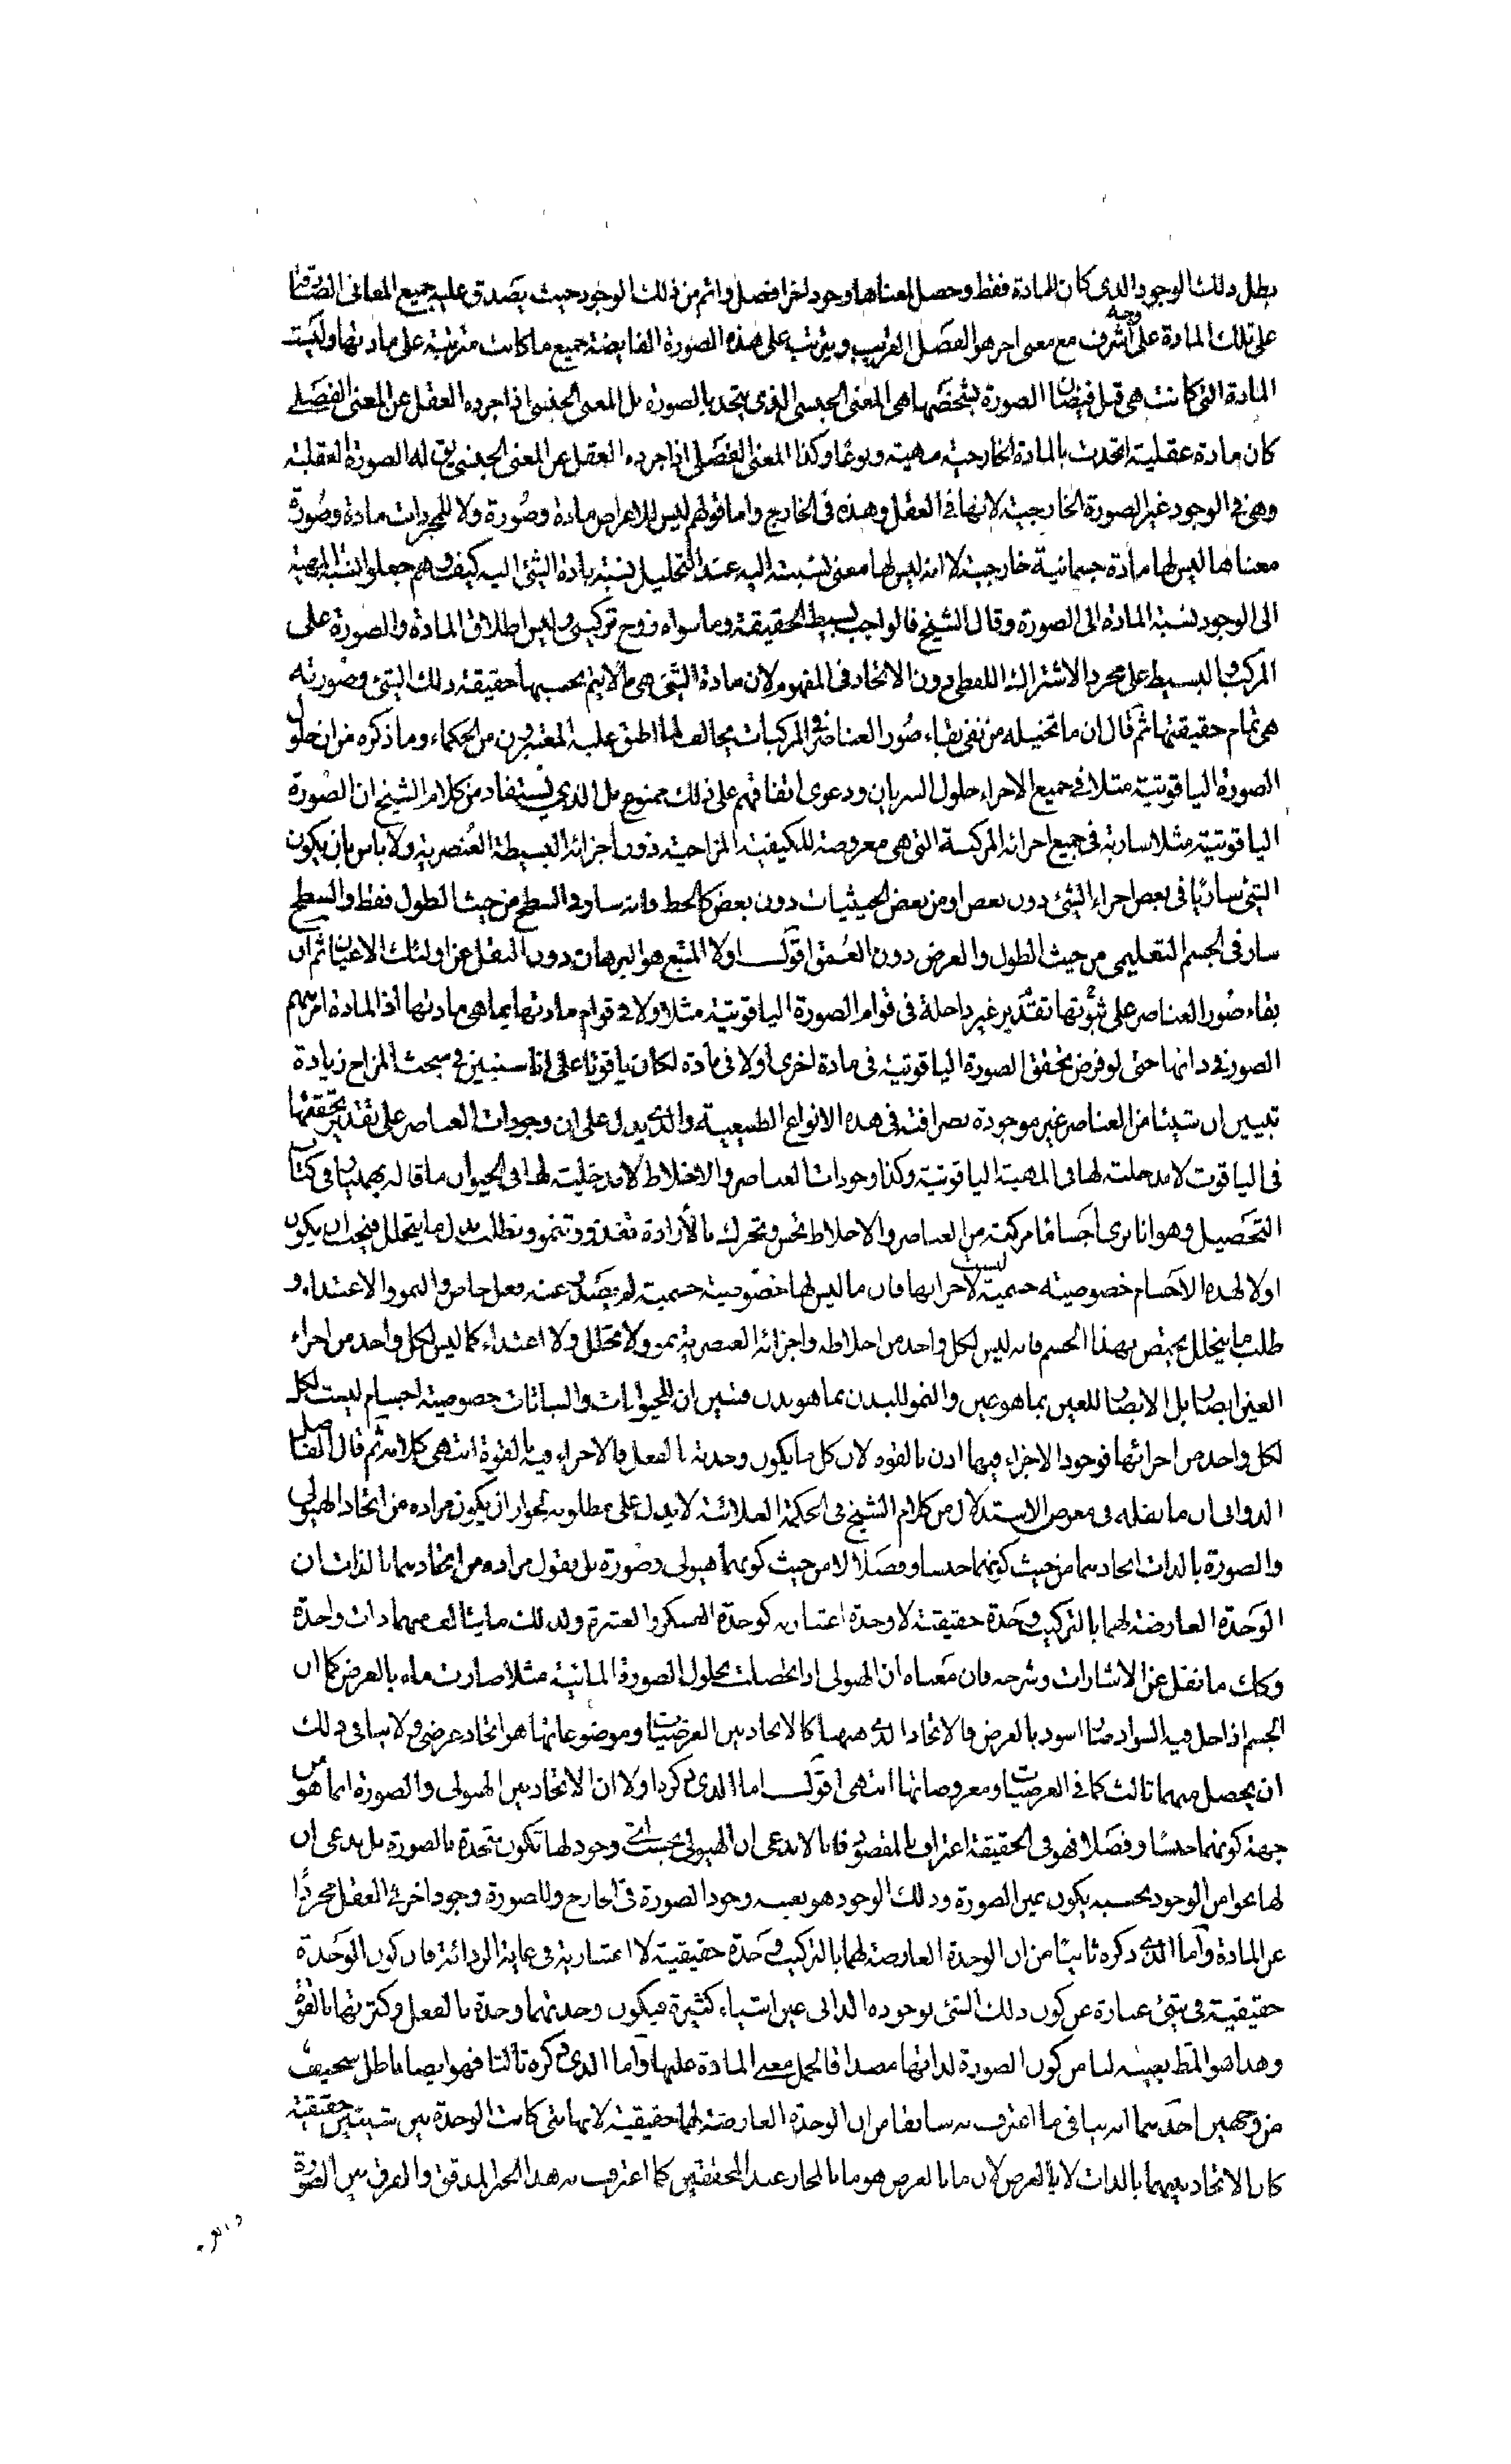 بطل ذلك الوجود الذى كان للمادة فقط وحصل لمعناها وجود اخر افضل واتم من ذلك الوجود حيث يصدق عليه جميع المعانى الصادقة
على تلك المادة على وجه اشرف مع معنى اخر هو الفصل القريب ويترتب على هذه الصورة الفايضة جميع ما كانت مترتبة على مادتها وليست
المادة التى كانت هى قبل فيضان الصورة بشخصها هى المعنى الجنسى الذى يتحد بالصورة بل المعنى الجنسى اذا جرده العقل عن المعنى الفصلى
كان مادة عقلية اتحدت بالمادة الخارجية مهية ونوعا وكذا المعنى الفصلى اذا جرده العقل عن المعنى الجنسى يق له الصورة العقلية
وهى فى الوجود غير الصورة الخارجية لانها فى العقل وهذه فى الخارج واما قولهم ليس للاعراض مادة وصورة ولا للمجردات مادة وصورة
معناها ليس لها مادة جسمانية خارجية لا انه ليس لها معنى نسبته اليه عند التحليل نسبة مادة الشئ اليه كيف وهم جعلوا نسبة المهية
الى الوجود نسبة المادة الى الصورة وقال الشيخ فالواجب بسيط الحقيقة وما سواه زوج تركيبى وليس اطلاق المادة والصورة على
المركب والبسيط على مجرد الاشتراك اللفظى دون الاتحاد فى المفهوم لان مادة الشئ هى ما لايتم بحسبها حقيقة ذلك الشئ وصورته
هى تمام حقيقتها ثم قال ان ما تخيله من نفى بقاء صور العناصر فى المركبات مخالف لما اطبق عليه المعتبرون من الحكماء وما ذكره من ان حلول
الصورة الياقوتية مثلا فى جميع الاجزاء حلول السريان ودعوى اتفاقهم على ذلك ممنوع بل الذى يستفاد من كلام الشيخ ان الصورة
الياقوتية مثلا سارية فى جميع اجزائه المركبة التى هى معروضة للكيفية المزاجية دون اجزائه البسيطة العنصرية ولا باس بان يكون
الشئ ساريا فى بعض اجزاء الشئ دون بعض او من بعض الحيثيات دون بعض كالخط فانه سار فى السطح من حيث الطول فقط والسطح
سار فى الجسم التعليمى من حيث الطول والعرض دون العمق اقول اولا المتبع هو البرهان دون النقل عن اولئك الاعيان ثم ان
بقاء صور العناصر على ثبوتها تقدير غير داخلة فى قوام الصورة الياقوتية مثلا ولا فى قوام مادتها بما هى مادتها اذ المادة امر مبهم
الصور فى ذاتها حتى لو فرض تحقق الصورة الياقوتية فى مادة اخرى او لا فى مادة لكان ياقوتا على انا سنبين فى مبحث المزاج زيادة
تبيين ان شيئا من العناصر غير موجودة بصرافته فى هذه الانواع الطبيعية والذى يدل على ان وجودات العناصر على تقدير تحققها
فى الياقوت لا مدخلية لها فى المهية الياقوتية وكذا وجودات العناصر والاخلاط لا مدخلية لها فى الحيوان ما قاله بهمنيار فى كتاب
التحصيل وهو انا نرى اجساما مركبة من العناصر والاخلاط تحس وتتحرك بالارادة وتغذو وتنمو وتطلب بدل ما يتحلل فيجب ان يكون
اولا لهذه الاجسام خصوصية جسمية ليست لاجزائها فان ما ليس لها خصوصية جسمية لم يصدر عنه فعل خاص والنمو والاغتذاء و
طلب ما يتحلل يختص بهذا الجسم فانه ليس لكل واحد من اخلاطه واجزائه العنصرية نمو ولا تحلل ولا اغتذاء كما ليس لكل واحد من اجزاء
العين ابصار بل الابصار للعين بما هو عين والنمو للبدن بما هو بدن فتبين ان للحيوانات والنباتات خصوصية اجسام ليست لكل
لكل واحد من اجزائها فوجود الاجزاء فيها اذن بالقوه لان كل ما يكون وحدته بالفعل فالاجزاء فيه بالقوة انتهى كلامه ثم قال الفاضل
الدوانى ان ما نقله فى معرض الاستدلال من كلام الشيخ فى الحكمة العلائية لا يدل على مطلوبه لجواز ان يكون مراده من اتحاد الهيولى
والصورة بالذات اتحادهما من حيث كونهما جنسا وفصلا لا من حيث كونهما هيولى وصورة بل يقول مراده من اتحادهما بالذات ان
الوحدة العارضة لهما بالتركيب وحدة حقيقية لا وحدة اعتبارية كوحدة العسكر والعشرة ولذلك ما يتالف منهما ذات واحدة
وكك ما نقل عن الاشارات وشرحه فان معناه ان الهيولى اذا حصلت بحلول الصورة المائية مثلا صارت ماء بالعرض كما ان
الجسم اذا حل فيه السواد صار اسود بالعرض فالاتحاد الذى هيهنا كالاتحاد بين العرضيات وموضوعاتها هو اتحاد عرضى ولا ينافى ذلك
ان يحصل منهما ثالث كما فى العرضيات ومعروضاتها انتهى اقول اما الذى ذكره اولا ان الاتحاد بين الهيولى والصورة انما هو من
جهة كونهما جنسا وفصلا فهو فى الحقيقة اعتراف بالمقصود فانا لا ندعى ان الهيولى بحسب اى وجود لها تكون متحدة بالصورة بل ندعى ان
لها نحوا من الوجود بحسبه يكون عين الصورة وذلك الوجود هو بعينه وجود الصورة فى الخارج وللصورة وجود اخر فى العقل مجردا
عن المادة واما الذى ذكره ثانيا من ان الوحدة العارضة لهما بالتركيب وحدة حقيقية لا اعتبارية فى غاية الردائة فان كون الوحدة
حقيقية فى شئ عبارة عن كون ذلك الشئ بوجوده الذاتى عين اشياء كثيرة فيكون وحدتهما وحدة بالفعل وكثرتهما بالقوة
وهذا هو المط بعينه لما من كون الصورة لذاتها مصداقا لحمل معنى المادة عليها واما الذى ذكره ثالثا فهو ايضا باطل سخيف
من وجهين احدهما انه ينافى ما اعترف به سابقا من ان الوحدة العارضة لهما حقيقية لانها متى كانت الوحدة بين شيئين حقيقية
كان الاتحاد بينهما بالذات لا بالعرض لان ما بالعرض هو ما بالمجاز عند المحققين كما اعترف به هذا النحرير المدقق والفرق بين الصورة